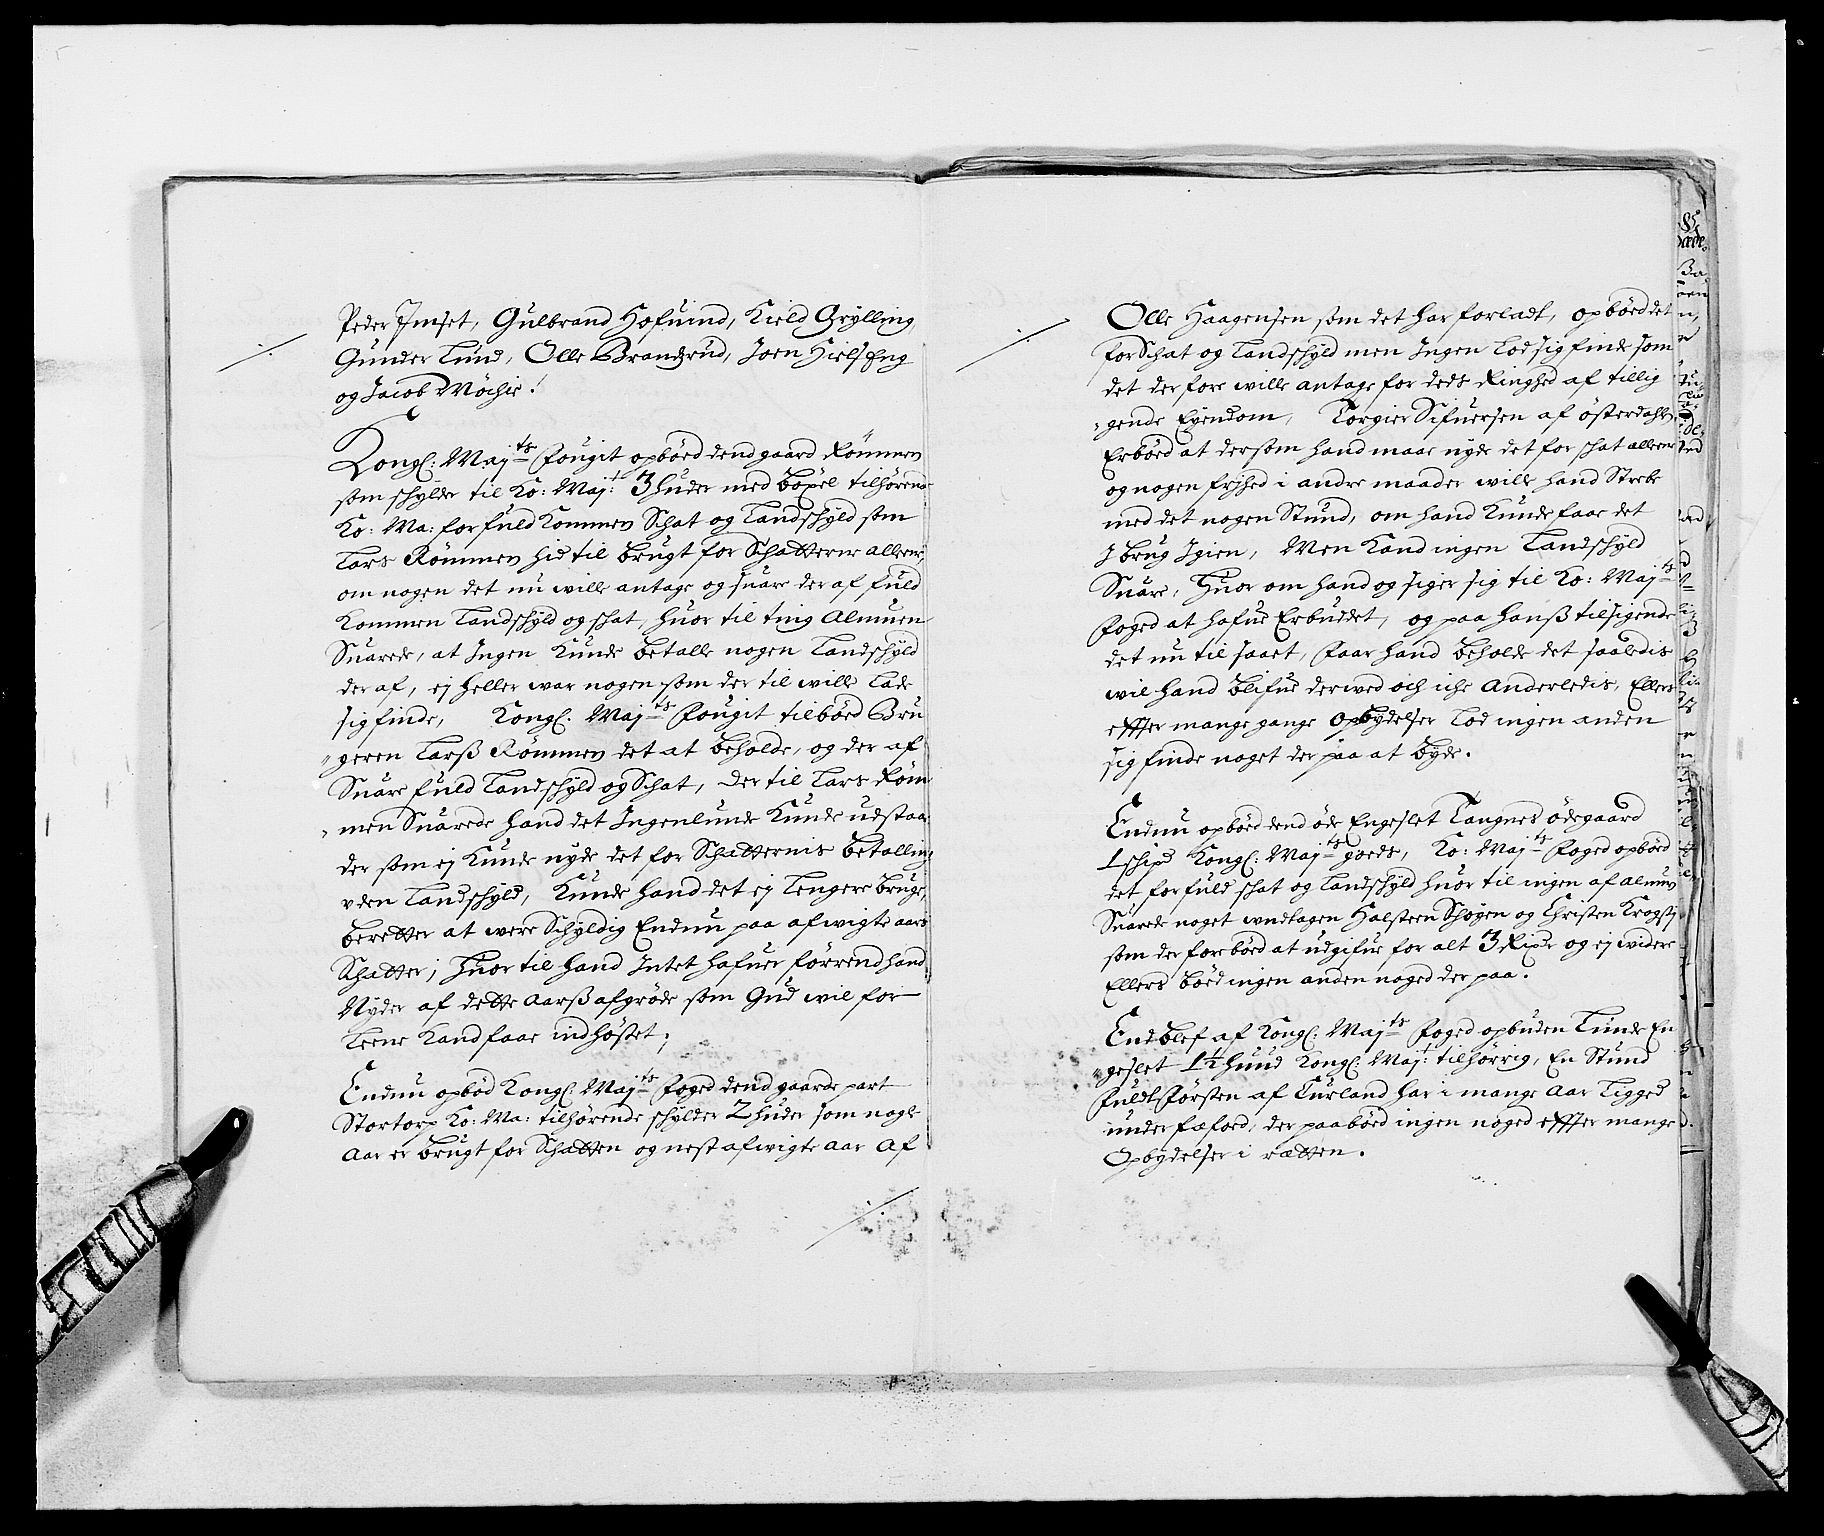 Peder Imset, Gulbrand Hofuind, Kield Grylling,
Gunder Lund, Olle Brandzrud, Joen Hielseng
og Jacob Möchie!
Kongl: Maj:ts Fougit opböed dend gaard Römmen
som schylder til Ko: Maj:t 3 huder med böxel tilhörend
Ko: Ma: for fuld Kommen Schat og Landschyld som
Lars Römmen hid til brugt for Schatterne alleene,
om nogen det nu wille antage og suare der af fuld
Kommen Landschyld og schat, huor til ting Almuen
Suarede, at Ingen Kunde betalle nogen Landschyld
der af, ej heller war nogen som der til wille Lade
sig finde, Kongl. Maj:ts Fougit tilböed Bru
geren Larß Römmen det at beholde, og der af
Suare fuld Landschyld og Schat, der til Lars Röm
men Suarede hand det Ingenlunde Kunde udstaa,
der som ej Kunde nyde det for Schatternis betalling
uden Landschyld, Kunde hand det ej Lengere bruge,
beretter at were Schyldig Endnu paa afwigte aars
Schatter, Huor til hand Intet hafuer förrend hand
Nyder af dette Aarß afgröde som Gud wil for
Leene Kand faae indhöstet;
Endnu opböd Kongl: Maj:ts Foged dend gaarde part
Stortorp Ko: Ma: tilhörende schylder 2 huder som nogle
Aar er brugt for Schatten og nest afwigte Aar Af
Olle Haagensen som det har forladt, opböed det
for Schat og Landschyld men Ingen Lod sig finde som
det derfore wille antage for deds Ringhed af tillig
gende Eyendom, Torgier Sifuersen af österdahlen
Erböed at dersom hand maae nyde det for schat alleene
og nogen frjhed i andre maader wille hand Strebe
med det nogen Stund, om hand Kunde faae det
I brug Igien, Men Kand ingen Landschyld
Suare, Huor om hand og siger sig til Ko: Maj:ts
Foged at hafue Erbuddet, og paa hanß tilsigende
det nu til saaet, Faar hand beholde det saaledis
wil hand blifue derwed och iche Anderledis, Ellers
effter mange gange opbydelser Lod ingen anden
sig finde noget der paa at byde.
Endnu opböed dend öde Engeslet Tangnes ödegaard
1 schipd Kongl: Maj:ts goeds, Ko: Maj:ts Foged opböed
det for fuld schat og Landschyld huor til ingen af almuen
Suarede noget undtagen Halsteen Schogen og Christen Krogstj
som der fore böed at udgifue for alt 3 Rixdr og ej widere
Ellers böed ingen anden noged der paa.
End blef af Kongl: Maj:ts Foged opbuden Lunde En
geslet 1½ huud Kongl: Maj:t tilhörrig, En Stund
Fuldt Försten af Turland har i mange Aar Ligged
under fæfoed, der paa böed ingen noged effter mange
Opbydelser i rætten.